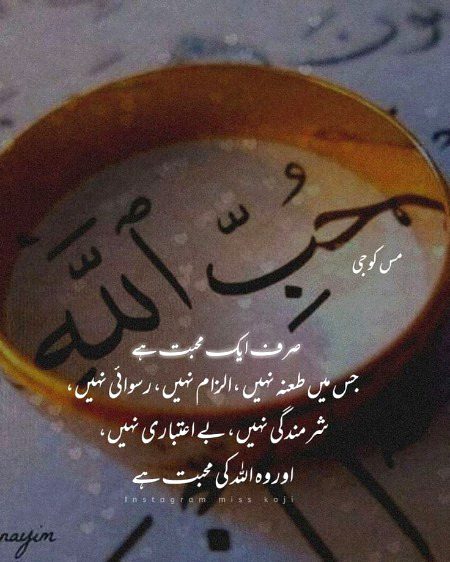 حُبُّ اللَّه
مس کوجی
صرف ایک محبت ہے
جس میں طعنہ نہیں، الزام نہیں، رسوائی نہیں،
شرمندگی نہیں، بے اعتباری نہیں،
اور وہ اللہ کی محبت ہے
Instagram miss koji
nayim